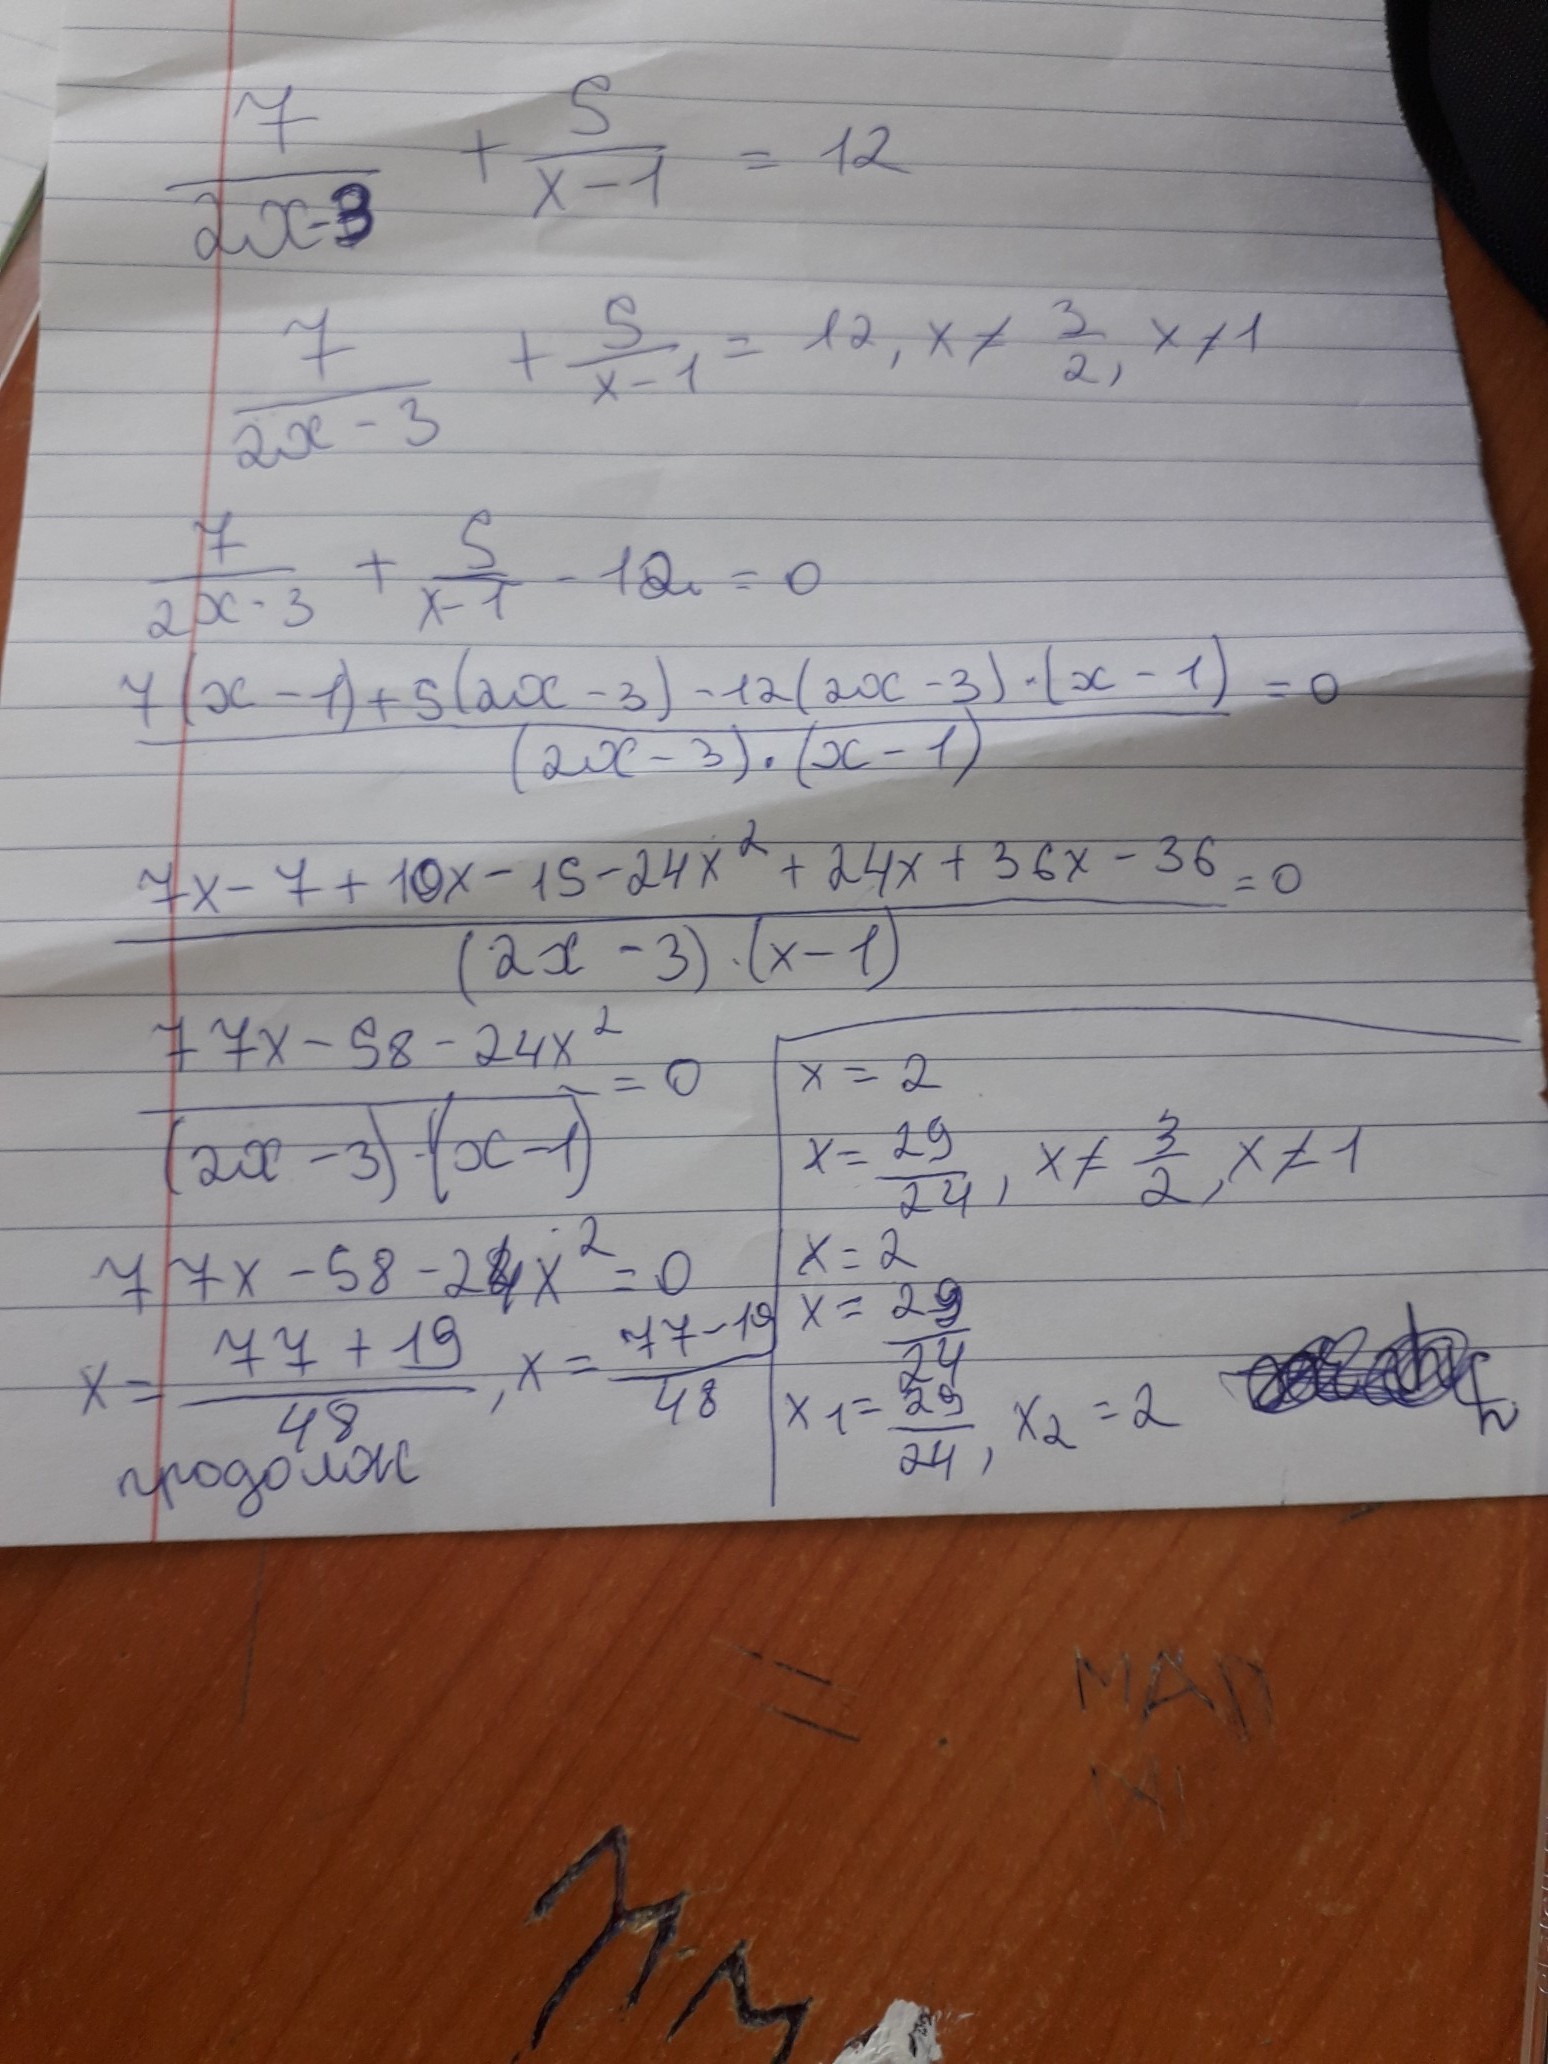 7/(2x-3) + 5/(x-1) = 12
7/(2x-3) + 5/(x-1) = 12, x≠ 3/2, x≠1
7/(2x-3) + 5/(x-1) - 12 = 0
(7(x-1)+5(2x-3)-12(2x-3)·(x-1))/((2x-3)·(x-1)) = 0
(7x-7+10x-15-24x²+24x+36x-36)/((2x-3)·(x-1)) = 0
(77x-58-24x²)/((2x-3)·(x-1)) = 0
77x-58-24x²=0
x= (77+19)/48, x= (77-19)/48
продолж
x = 2
x= 29/24, x≠ 3/2, x≠1
x=2
x= 29/24
x1= 29/24, x2=2
МАП